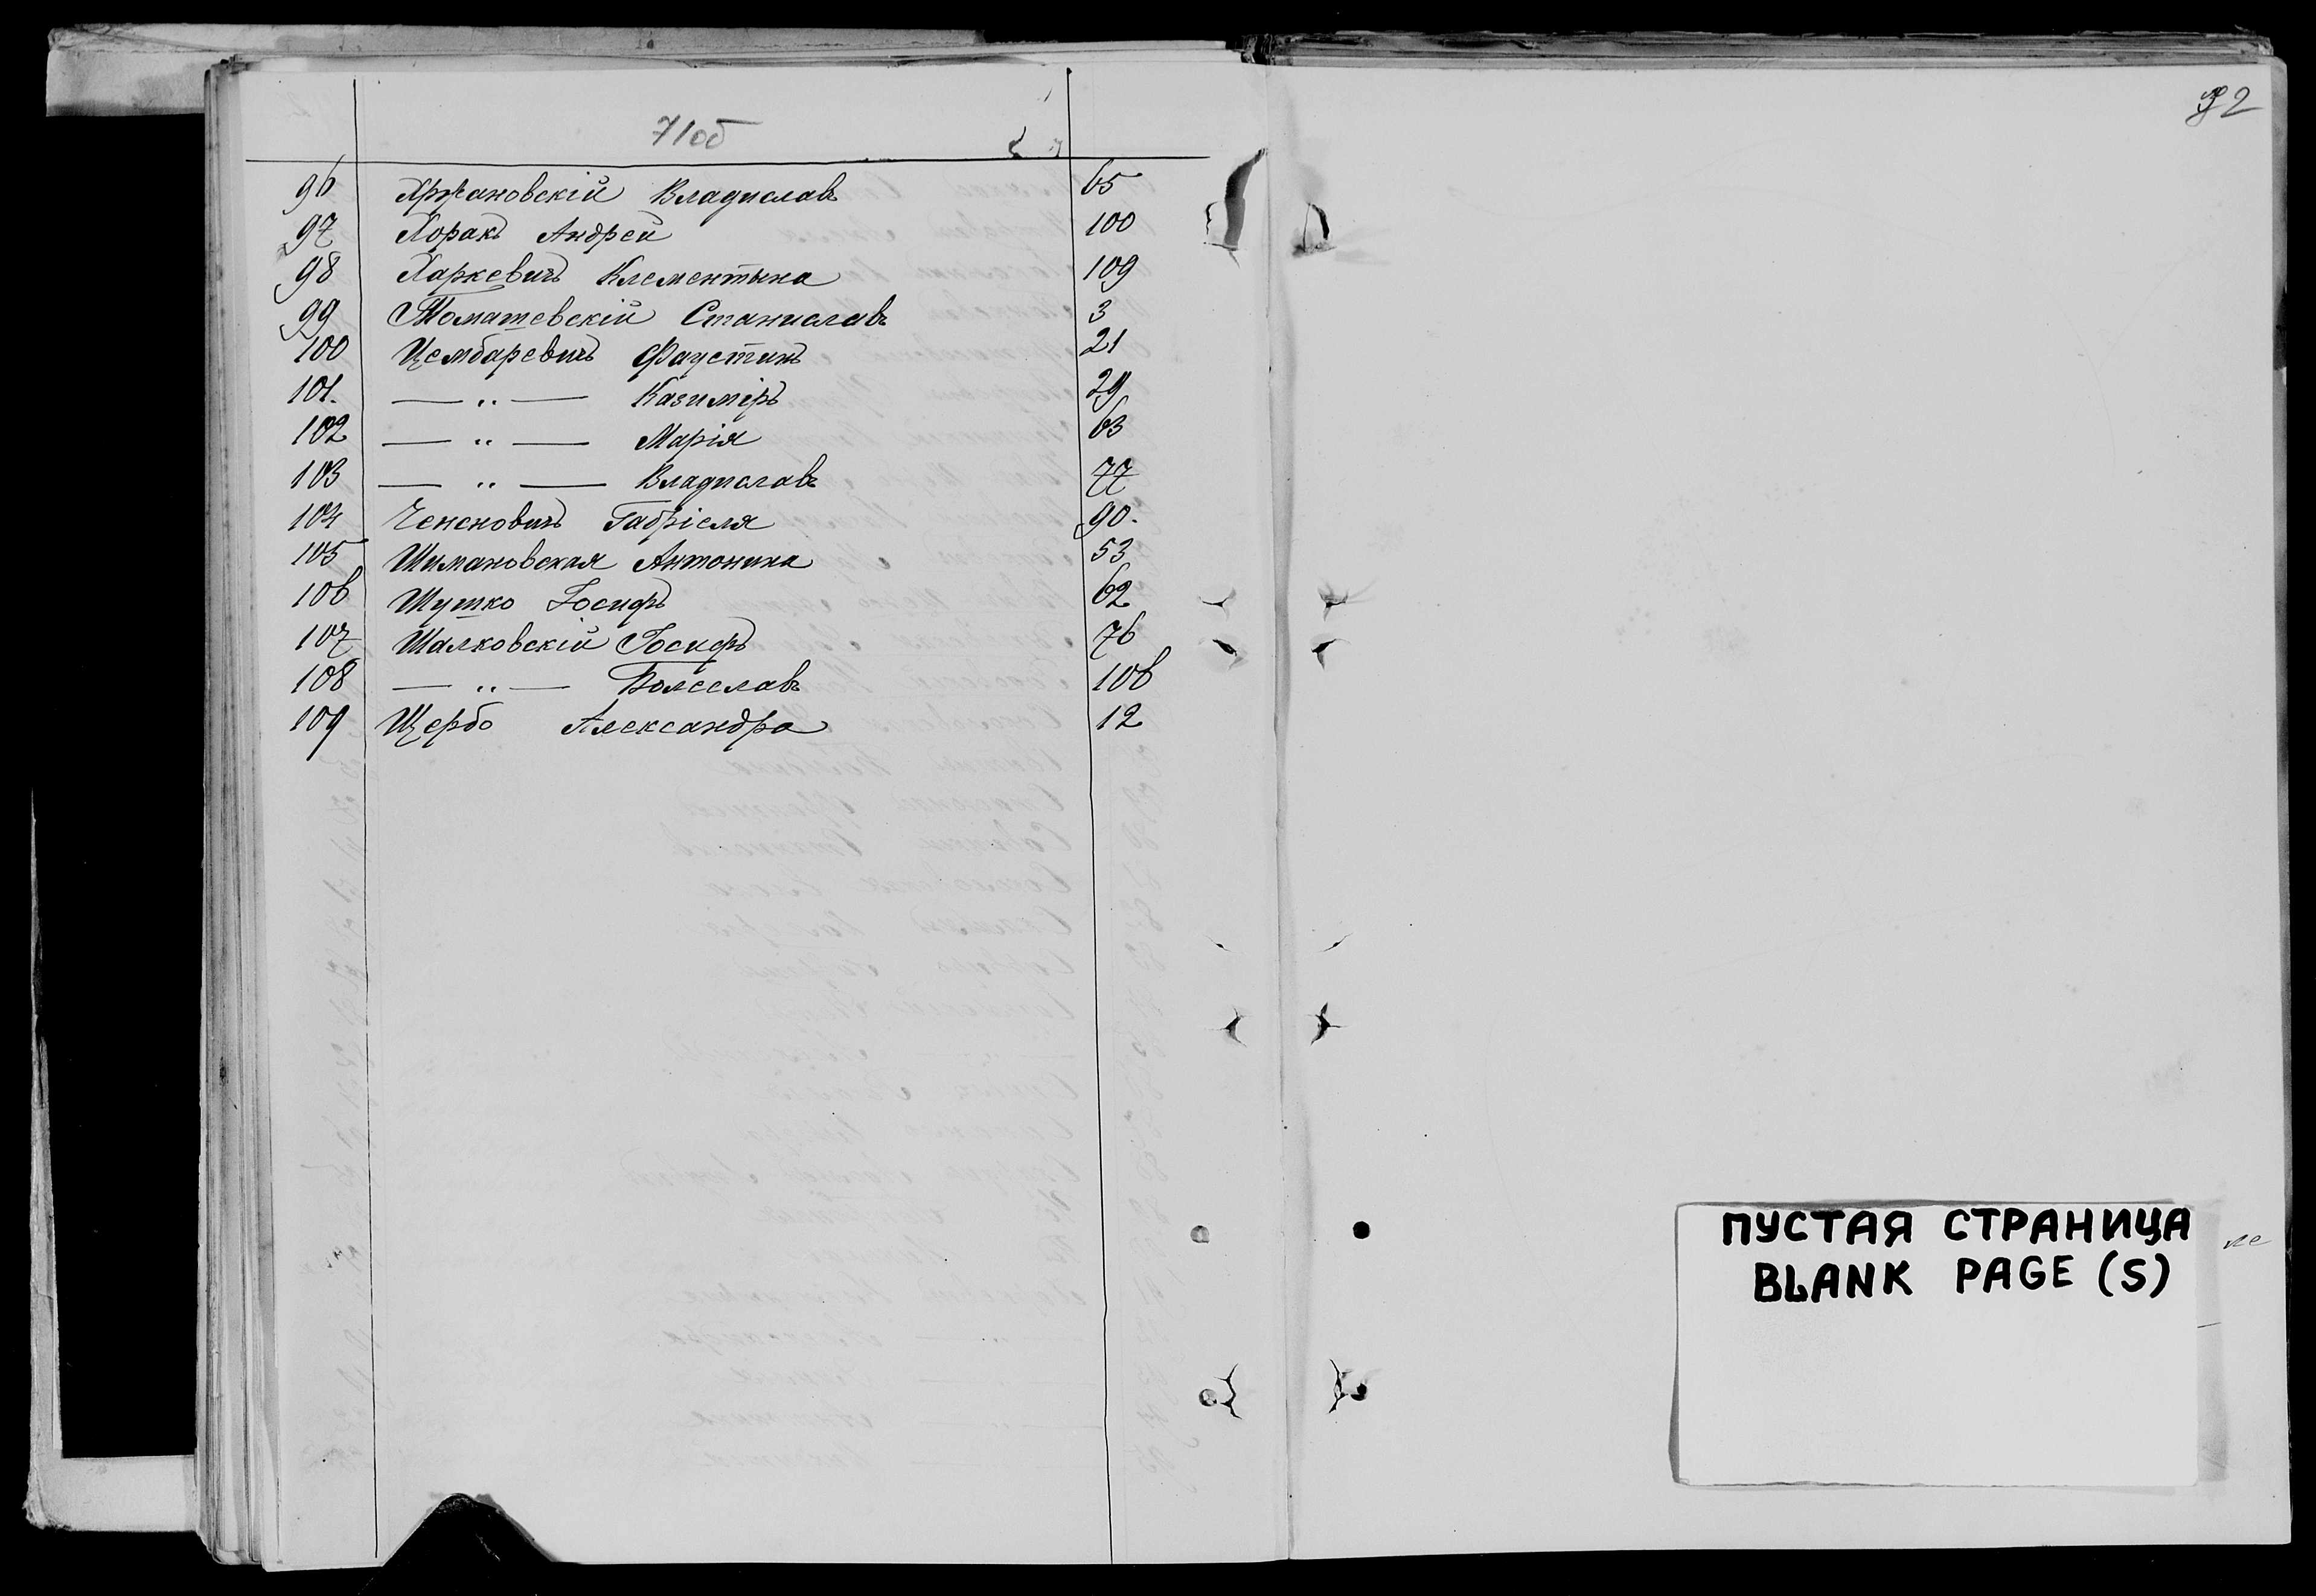 71об
96 Хржановскій Владиславъ 65
97 Хоракъ Андрей 100
98 Харкевичъ Клементына 109
99 Томашевскій Станиславъ 3
100 Цембаревичъ Фаустинъ 21
101. — „ — Казиміръ 29
102 — „ — Марія 63
103 — „ — Владиславъ 77
104 Ченсновичъ Габріеля 90.
105 Шимановская Антонина 53
106 Шушко Іосифъ 62
107 Шалковскій Іосифъ 76
108 — „ — Болеславъ 106
109 Щербо Александра 12
ПУСТАЯ СТРАНИЦА
BLANK PAGE (S)